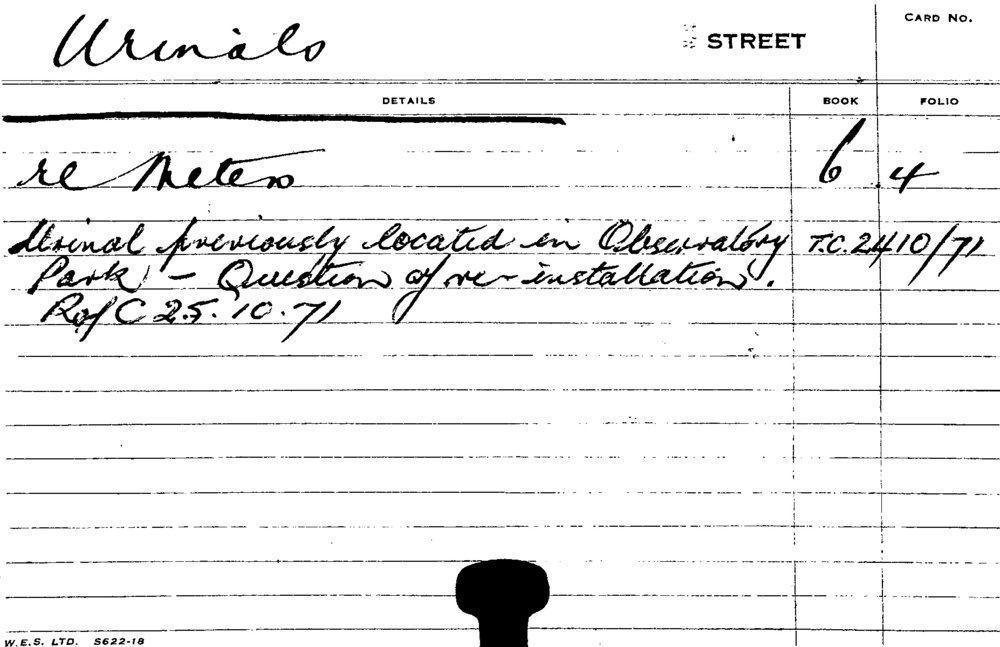 Urinals STREET CARD No.
DETAILS BOOK FOLIO
re Meters 6 4
Urinal previously located in Observatory T.C. 2410/71
Park - Question of re-installation.
RofC 25.10.71
W.E.S. LTD. S622-18